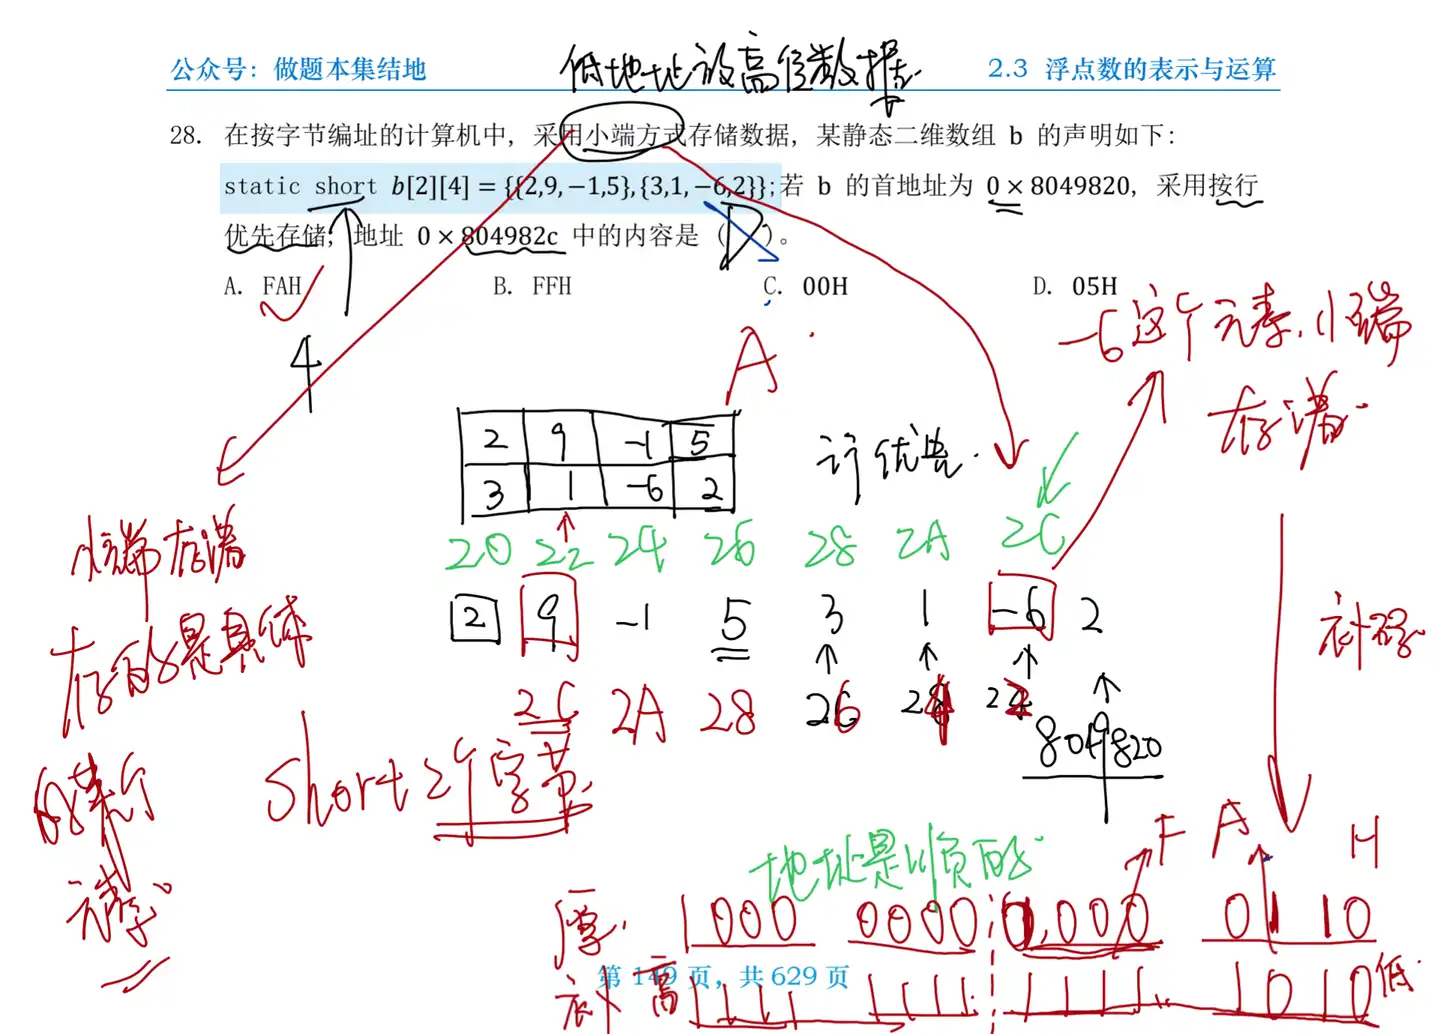 低地址放高位数据
公众号：做题本集结地
2.3 浮点数的表示与运算
28. 在按字节编址的计算机中，采用小端方式存储数据，某静态二维数组 b 的声明如下：
static short b[2][4] = {{2,9,−1,5},{3,1,−6,2}};若 b 的首地址为 0×8049820，采用按行
优先存储，地址 0×804982c 中的内容是（ ）。
A. FAH
B. FFH
C. 00H
D. 05H
-6这个元素，小端
存储
4
A
2 9 -1 5
3 1 -6 2
行优先
20 22 24 26 28 2A 2C
2 9 -1 5 3 1 -6 2
小端存储
存的是具体
的某个
元素
补码
2C 2A 28 26
8049820
short 2个字节
地址是顺的
F A H
原 1000 0000 0000 0110
第 149 页，共 629 页
补 高 1111 1111 1111 1010 低